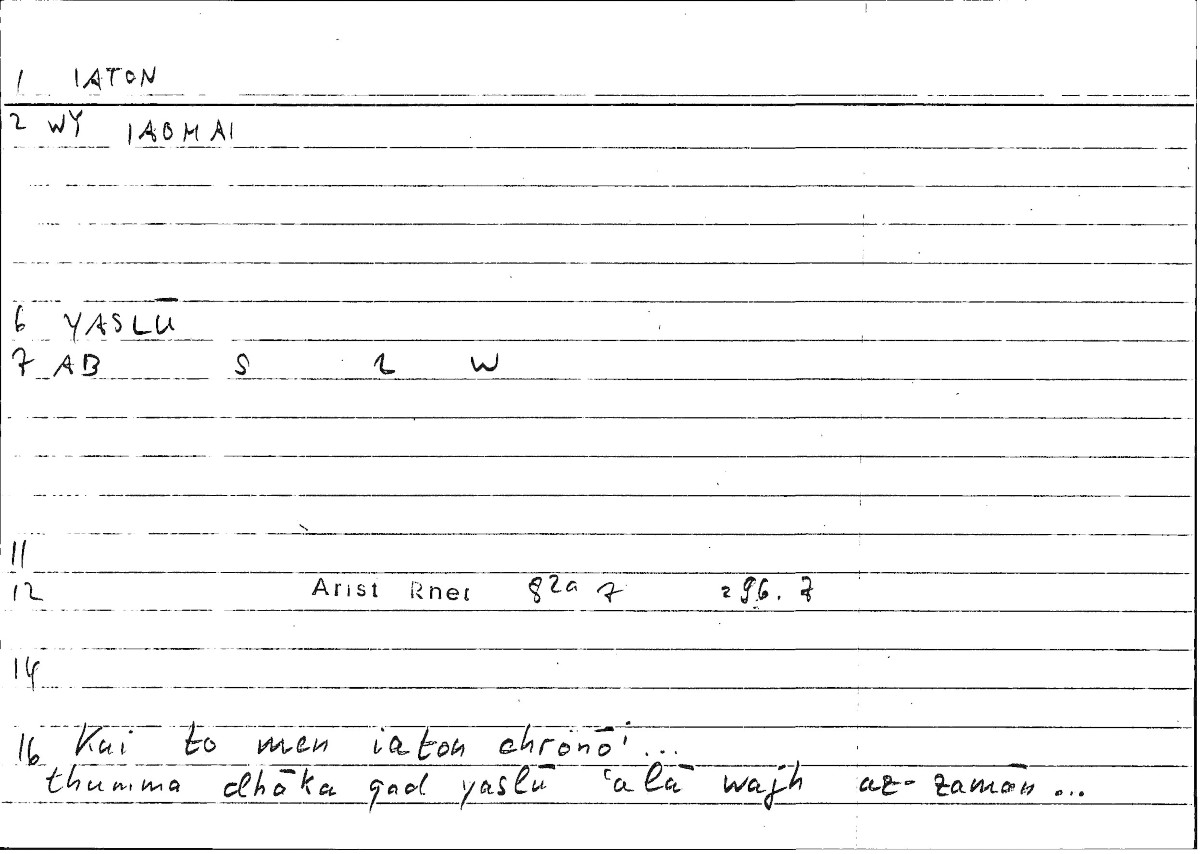 1 IATON
2 WY IAOMAI
6 YASLŪ
7 AB S 2 W
11
12 Arist Rhet 82a 7 296. 7
14
16 Kai to men iaton chronōi...
thumma dhāka qad yaslū ʿalā wajh az-zamān...